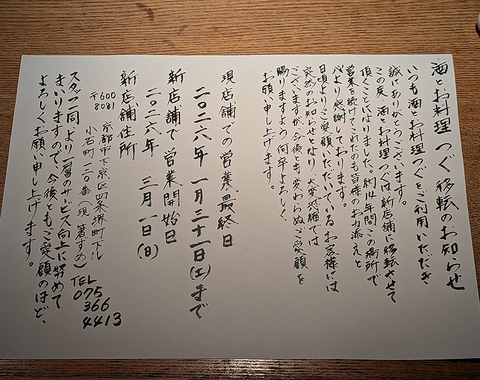 酒とお料理 つぐ 移転のお知らせ
いつも酒とお料理つぐをご利用いただき
誠にありがとうございます。
この度、酒とお料理つぐは新店舗に移転させて
頂くことになりました。約11年間この場所で
営業を続けてこれたのもお客様のお力添えと
心より感謝しております。
日頃よりご愛顧いただいているお客様には
突然のお知らせとなり、大変恐縮では
ございますが、今後とも変わらぬご愛顧を
賜りますよう何卒よろしく
お願い申し上げます。
現店舗での営業最終日
二〇二六年 一月三十一日(土)まで
新店舗で営業開始日
二〇二六年 三月一日(日)
新店舗住所
〒600
8081
京都市下京区四条堺町下ル
小石町一二〇番(現 第すめ)
TEL
075
366
4413
スタッフ一同より一層のサービス向上に努めて
まいりますので、今後ともご愛顧のほど、
よろしくお願い申し上げます。